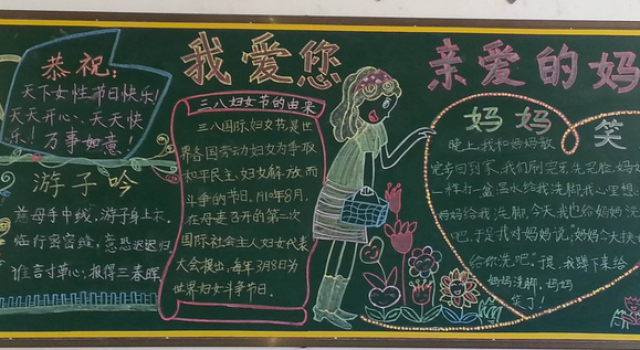 恭祝：
天下女性节日快乐！
天天开心、天天快
乐！万事如意！
游子吟
慈母手中线，游子身上衣。
临行密密缝，意恐迟迟归
谁言寸草心，报得三春晖
我爱您
三八妇女节的由来
三八国际妇女节是世
界各国劳动妇女为争取
和平民主、妇女解放而
斗争的节日。1910年8月，
在丹麦召开的第二次
国际社会主义妇女代表
大会提出，每年3月8日为
世界妇女斗争节日。
亲爱的妈
妈妈笑
晚上，我和妈妈散
完步回到家，我们刷完牙洗完脸，妈妈
一样打一盆热水给我洗脚，我心里想
妈妈给我洗脚，今天我也给妈妈洗
吧。于是我对妈妈说：妈妈今天我
给你洗吧。于是，我蹲下来给
妈妈洗脚，妈妈
笑了！